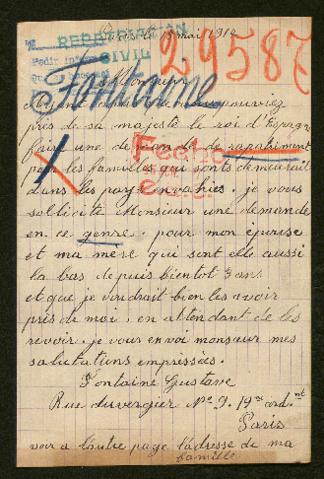 Paris le 15 mai 1917
REPATRIACION
CIVIL
29587
Fontaine
Monsieur
Ayant
pouviez
près de sa majesté le roi d'Espagne
faire une demande de rapatriment
pour les familles qui sonts demeurait
dans les pays envahies. je vous
sollicite Monsieur une demande
en ce genre. pour mon épouse
et ma mère qui sont elle aussi
la bas depuis bientot 3 ans
et que je voudrait bien les avoir
près de moi. en attendant de les
revoir. je vous envoi monsieur mes
salutations empressées.
Fontaine Gustave
Rue duvergier No 9. 19me ardnt
Paris
voir a l'autre page l'adresse de ma
famille